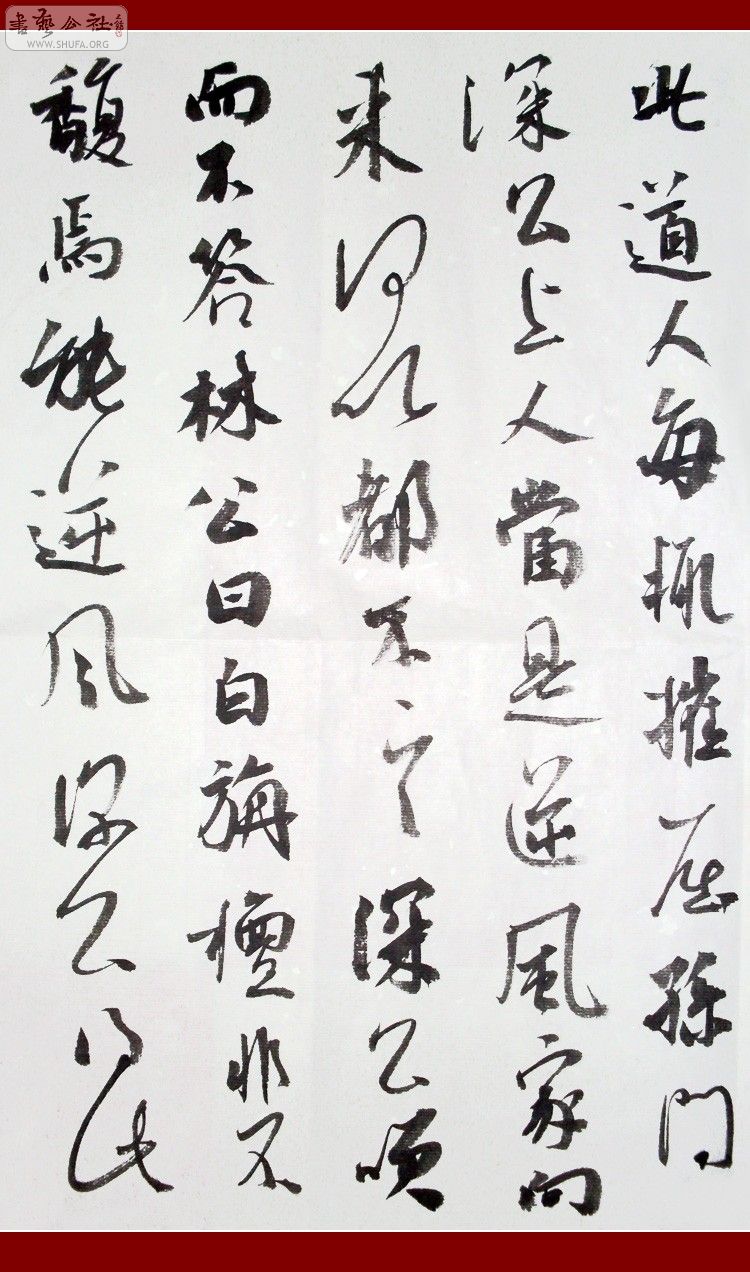 書藝公社
WWW.SHUFA.ORG
此道人每輒摧屈孫問
深公上人當是逆風家向
来何以都不言深公咲
而不答林公曰白旃檀非不
馥焉能逆風深公得此